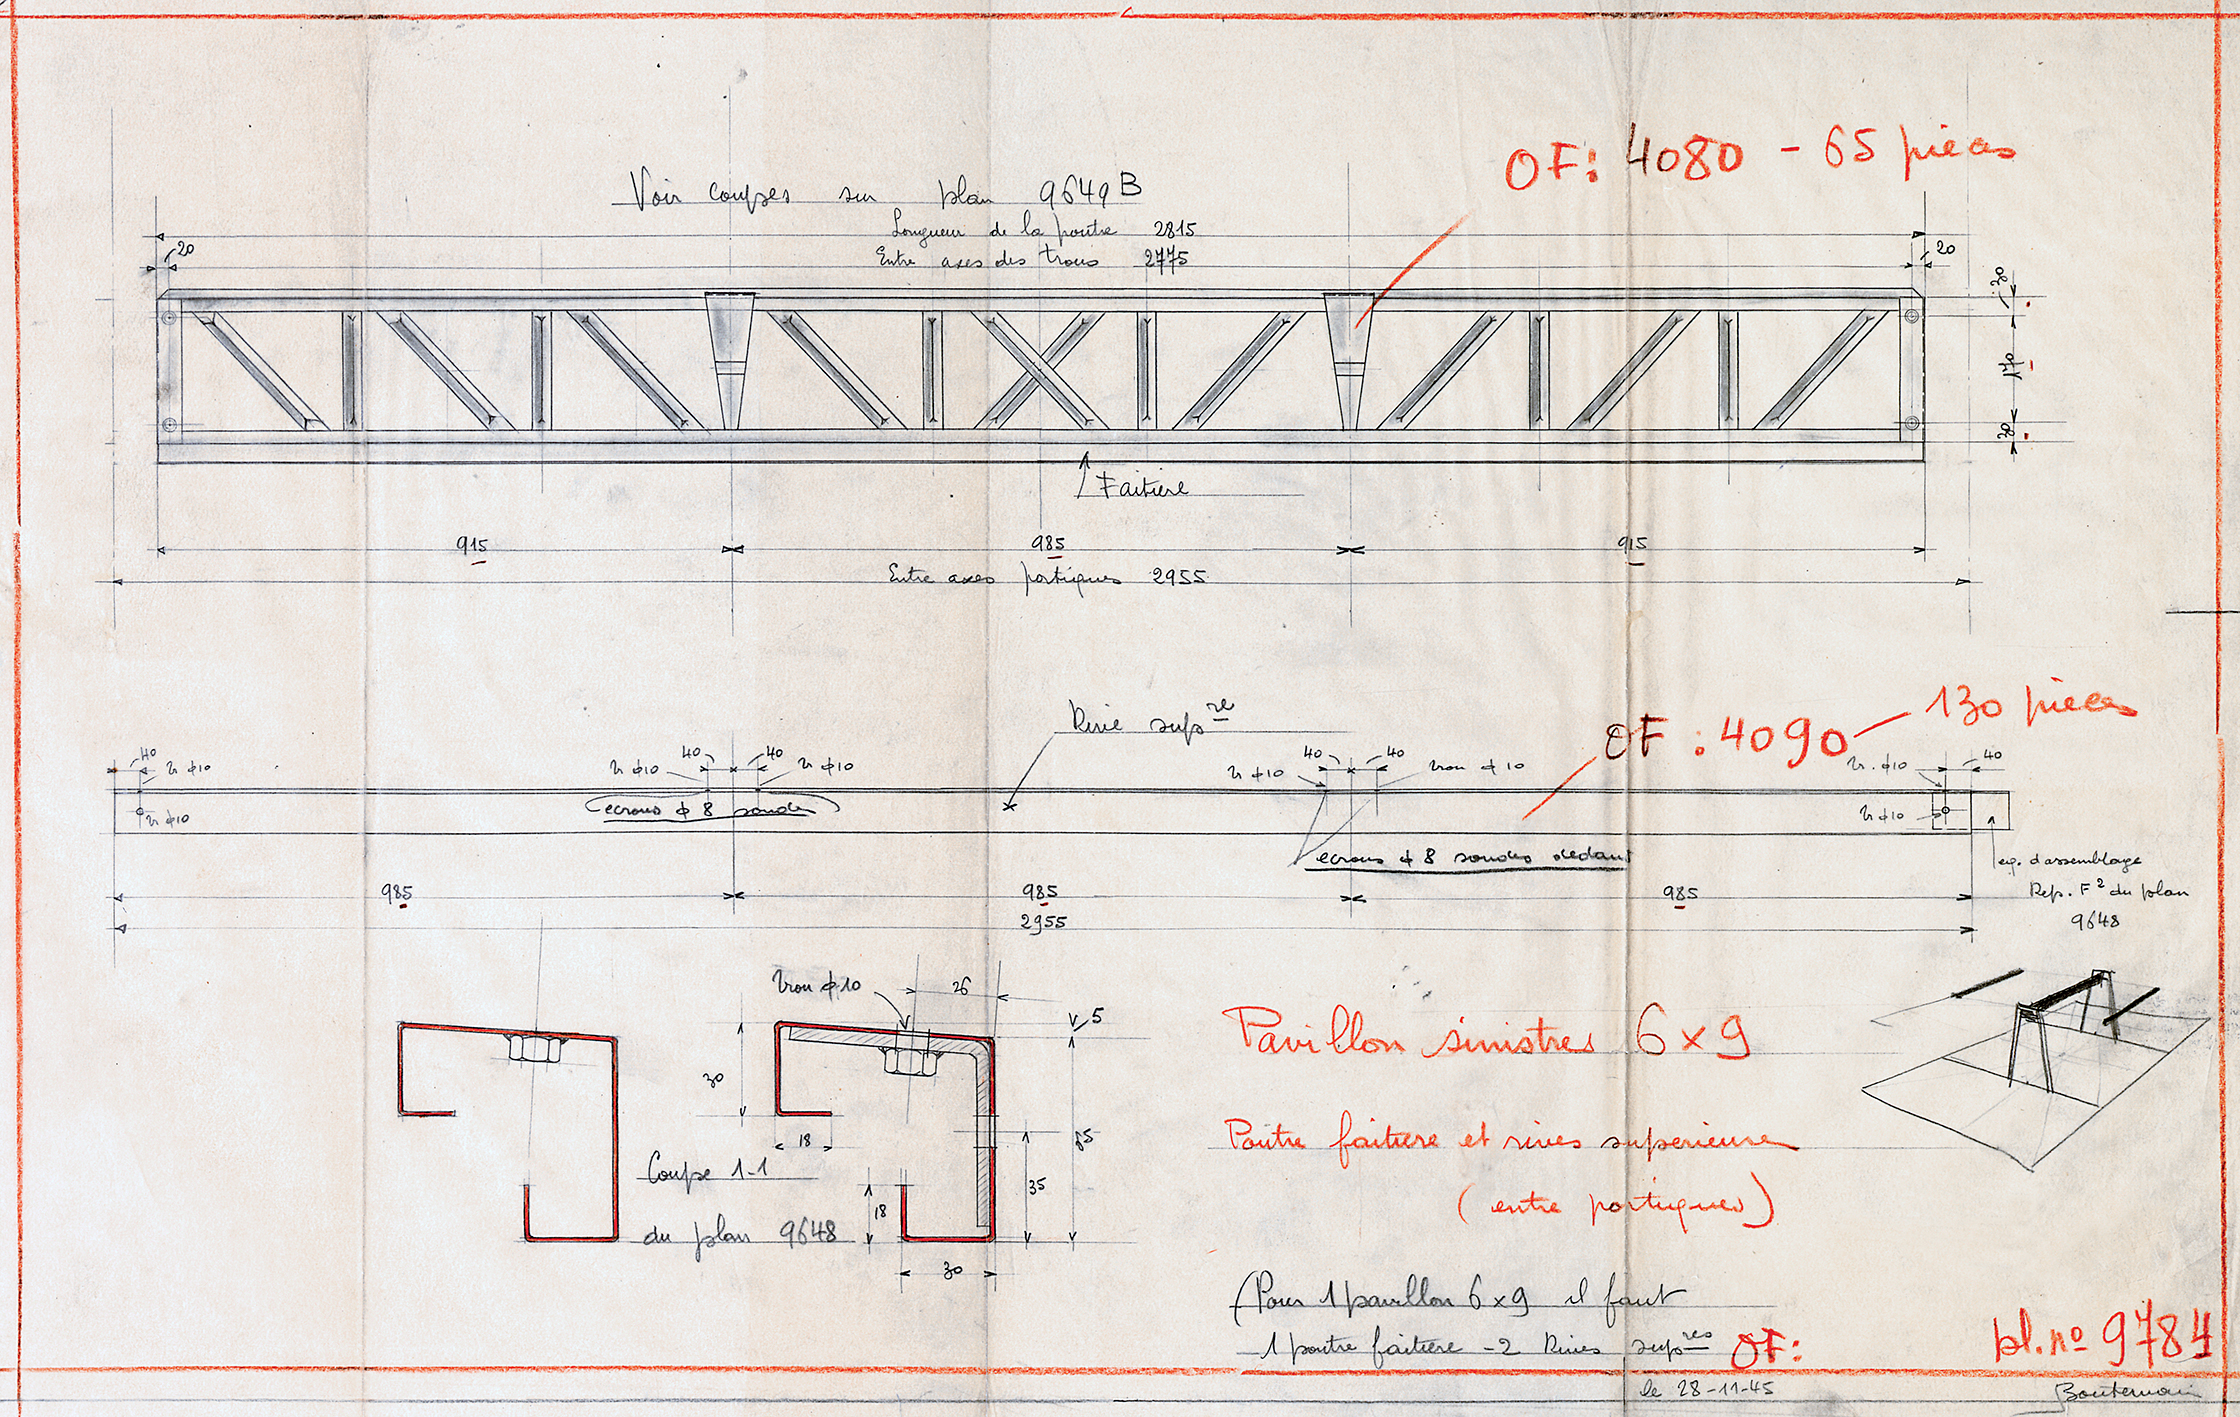 OF: 4080 - 65 pièces
Voir coupes sur plan 9649 B
Longueur de la poutre 2815
Entre axes des trous 2775
20
20
30
170
30
Faitière
915
985
915
Entre axes portiques 2955
Rive sup re
OF : 4090 - 130 pièces
40
40
40
40
40
40
tr ϕ10
tr ϕ10
tr ϕ10
tr ϕ10
trou ϕ 10
tr. ϕ10
tr ϕ10
tr ϕ10
ecrous ϕ 8 soudés
ecrous ϕ 8 soudés dedans
eq. d'assemblage
Rep. F2 du plan
9648
985
985
985
2955
Trou ϕ 10
26
5
30
18
65
35
18
30
Coupe 1-1
du plan 9648
Pavillon sinistrés 6 x 9
Poutre faitière et rives superieures
(entre portiques)
(Pour 1 pavillon 6 x 9 il faut
1 poutre faitiere - 2 Rives sup res OF:
pl. no 9784
le 28-11-45